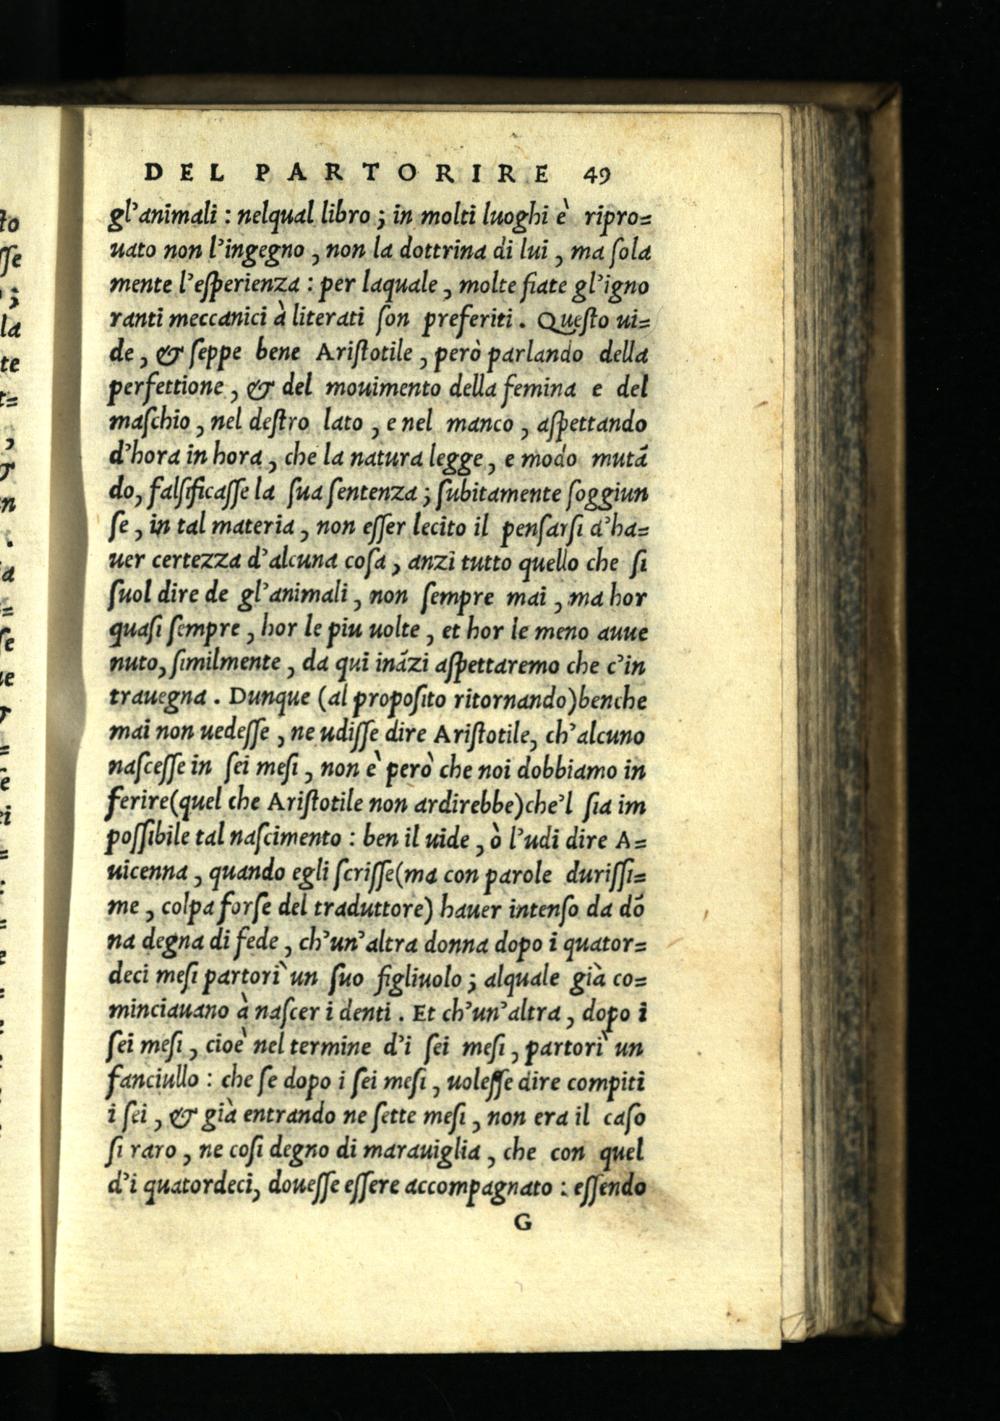 DEL PARTORIRE 49
gl'animali : nelqual libro ; in molti luoghi è ripro=
uato non l'ingegno , non la dottrina di lui , ma ſola
mente l'eſperienza : per laquale , molte fiate gl'igno
ranti meccanici à literati ſon preferiti . Queſto ui=
de , & ſeppe bene Ariſtotile , però parlando della
perfettione , & del mouimento della femina e del
maſchio , nel deſtro lato , e nel manco , aſpettando
d'hora in hora , che la natura legge , e modo mutā
do, falſificaſſe la ſua ſentenza ; ſubitamente ſoggiun
ſe , in tal materia , non eſſer lecito il penſarſi d'ha=
uer certezza d'alcuna coſa , anzi tutto quello che ſi
ſuol dire de gl'animali , non ſempre mai , ma hor
quaſi ſempre , hor le piu uolte , et hor le meno auue
nuto, ſimilmente , da qui ināzi aſpettaremo che c'in
trauegna . Dunque (al propoſito ritornando)benche
mai non uedeſſe , ne udiſſe dire Ariſtotile, ch'alcuno
naſceſſe in ſei meſi , non è però che noi dobbiamo in
ferire(quel che Ariſtotile non ardirebbe)che'l ſia im
poſſibile tal naſcimento : ben il uide , ò l'udi dire A=
uicenna , quando egli ſcriſſe(ma con parole duriſſi=
me , colpa forſe del traduttore) hauer intenſo da dō
na degna di fede , ch'un'altra donna dopo i quator=
deci meſi partorì un ſuo figliuolo ; alquale già co=
minciauano à naſcer i denti . Et ch'un'altra , dopo i
ſei meſi , cioè nel termine d'i ſei meſi , partorì un
fanciullo : che ſe dopo i ſei meſi , uoleſſe dire compiti
i ſei , & già entrando ne ſette meſi , non era il caſo
ſi raro , ne coſi degno di marauiglia , che con quel
d'i quatordeci, doueſſe eſſere accompagnato : eſſendo
G